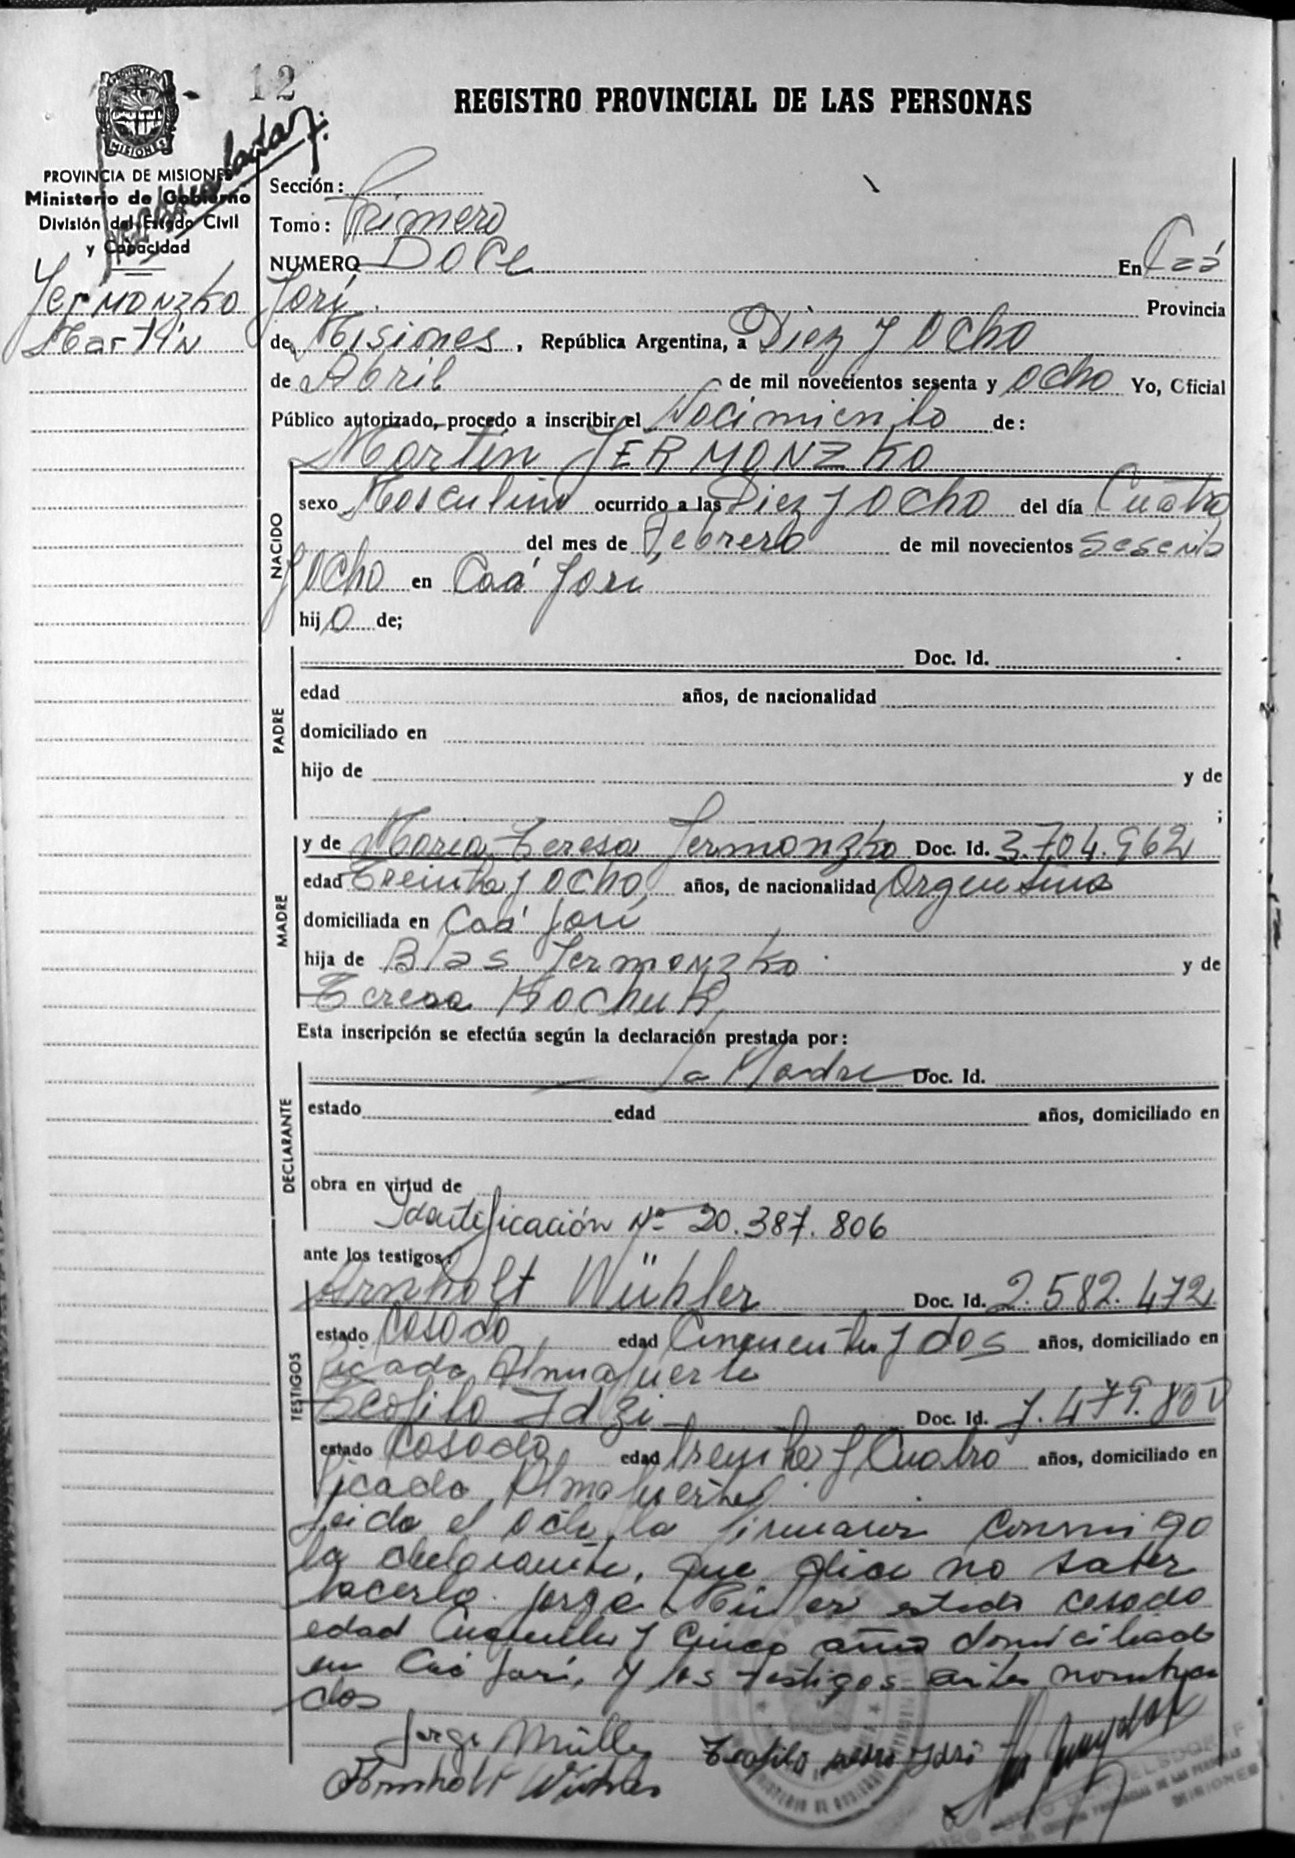 12
REGISTRO PROVINCIAL DE LAS PERSONAS
MISIONES
PROVINCIA DE MISIONES
Ministerio de Gobierno
División del Estado Civil
y Capacidad
Jermonzko
Martín
Sección:
Tomo: Primero
NUMERO Doce En Caá
Yarí Provincia
de Misiones, República Argentina, a Diez y Ocho
de Abril de mil novecientos sesenta y ocho Yo, Oficial
Público autorizado, procedo a inscribir el Nacimiento de:
Martín JERMONZKO
NACIDO
sexo Masculino ocurrido a las Diez y Ocho del día Cuatro
del mes de Febrero de mil novecientos sesenta
y Ocho en Caá Yarí
hijo de;
PADRE
Doc. Id.
edad años, de nacionalidad
domiciliado en
hijo de y de
;
MADRE
y de María Teresa Jermonzko Doc. Id. 3.704.962
edad Treinta y Ocho años, de nacionalidad Argentina
domiciliada en Caá Yarí
hija de Blas Jermonzko y de
Teresa Kochuk
Esta inscripción se efectúa según la declaración prestada por:
DECLARANTE
La Madre Doc. Id.
estado edad años, domiciliado en
obra en virtud de
Identificación Nº 20.387.806
ante los testigos:
TESTIGOS
Arnholt Wühler Doc. Id. 2.582.472
estado Casado edad Cincuenta y dos años, domiciliado en
Picada Almafuerte
Teofilo Idzi Doc. Id. 7.479.800
estado Casado edad treinta y Cuatro años, domiciliado en
Picada Almafuerte
Leida el acta, la firman conmigo
la declarante, que dice no saber
hacerlo Jorge Müller estado casado
edad Cincuenta y Cinco años domiciliado
en Caá Yarí, y los testigos antes nombra
dos
Jorge Müller
Teofilo Pedro Idzi
Arnholt Wühler